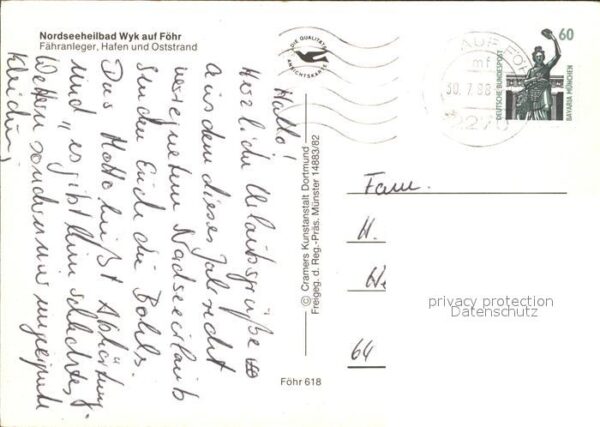 Nordseeheilbad Wyk auf Föhr
Fähranleger, Hafen und Oststrand
Hallo!
Herzliche Urlaubsgrüße
aus dem dieses Jahr recht
verregneten Nordseeurlaub
senden Euch die
Das Motto heißt Abhärtung
und "es gibt kein schlechtes
Wetter sondern nur ungeeignete
Kleidung"
DIE QUALITÄTS
ANSICHTSKARTE
© Cramers Kunstanstalt Dortmund
Freigeg. d. Reg.-Präs. Münster 14883/82
Föhr 618
AUF FÖHR
mf
30.7.88
2270
60
DEUTSCHE BUNDESPOST
BAVARIA MÜNCHEN
Fam.
H.
We
64
privacy protection
Datenschutz